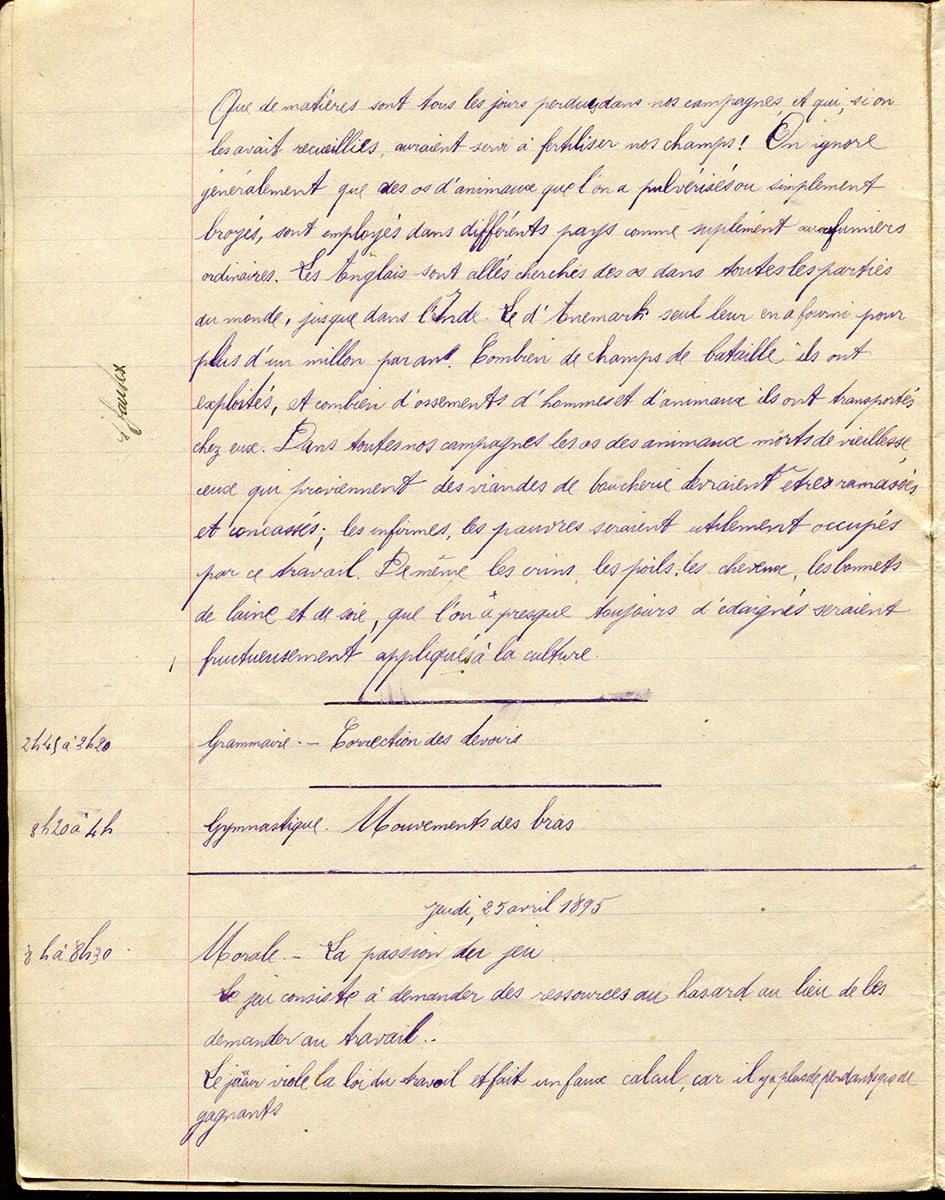 Que de matières sont tous les jours perdues dans nos campagnes, et qui, si on
les avait recueillies, auraient servi à fertiliser nos champs! On ignore
généralement que des os d'animaux que l'on a pulvérisés ou simplement
broyés, sont employés dans différents pays comme suplément aux fumiers
ordinaires. Les Anglais sont allés cherches des os dans toutes les parties
du monde, jusque dans l'Inde. Le d'Anemark seul leur en a fourni pour
plus d'un millon par an. Combien de champs de bataille ils ont
exploités, et combien d'ossements d'hommes et d'animaux ils ont transportés
chez eux. Dans toutes nos campagnes les os des animaux morts de vieillesse,
ceux qui proviennent des viandes de boucherie devraient êtres ramassés
et concassés; les infirmes, les pauvres seraient utilement occupés
par ce travail. De même les crins, les poils, les cheveux, les bonnets
de laine et de soie, que l'on a presque toujours d'édaignés seraient
fructueusement appliqués à la culture.
2h45 à 3h20 Grammaire. — Correction des devoirs
3h20 à 4h Gymnastique. Mouvements des bras
Jeudi, 25 avril 1895
8h à 8h30 Morale. — La passion du jeu.
Le jeu consiste à demander des ressources au hasard au lieu de les
demander au travail..
Le joueur viole la loi du travail et fait un faux calcul, car il y a plus de perdants que de
gagnants